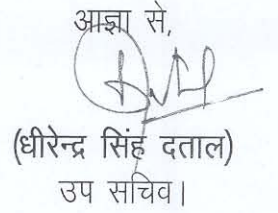 आज्ञा से,
(धीरेन्द्र सिंह दताल)
उप सचिव।